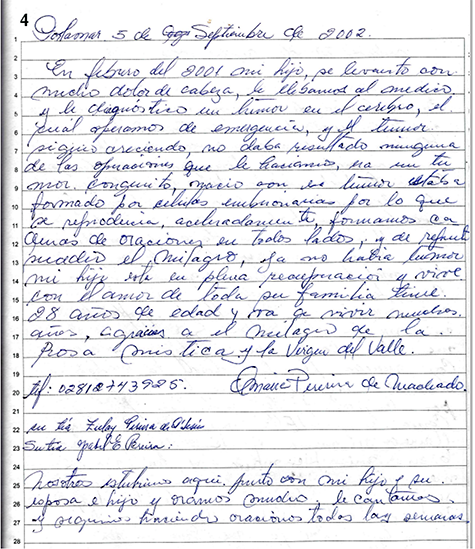 4
1
Porlamar 5 de Septiembre de 2002.
2
3 En febrero del 2001 mi hijo, se levanto con
4 mucho dolor de cabeza, le llebamos al medico
5 y le diagnóstico un tumor en el cerebro, el
6 cual operamos de emergencia, y el tumor
7 siguio creciendo, no daba resultado ninguna
8 de las operaciones que le haciamos, era un tu
9 mor conguito, nacio con ese tumor estaba
10 formado por células embrionarias por lo que
11 se reproducia, aceleradamente formamos ca
12 denas de oraciones en todos lados, y de repente
13 sucedio el milagro, ya no habia tumor
14 mi hijo esta en plena recuperación y vive
15 con el amor de toda su familia tiene
16 28 años de edad y va a vivir muchos
17 años, a gracias a el milagro de la
18 Rosa mistica y la Virgen del Valle.
19
20 tlf: 02812743925. Omaira Pereira de Machado.
21
22 su tia Zulay Pereira de
23 Su tia E Pereira:
24
25 Nosotros estubimos aqui, junto con mi hijo y su
26 esposa e hijo y oramos mucho, le cantamos
27 y seguimos haciendo oraciones todas las semanas.
28